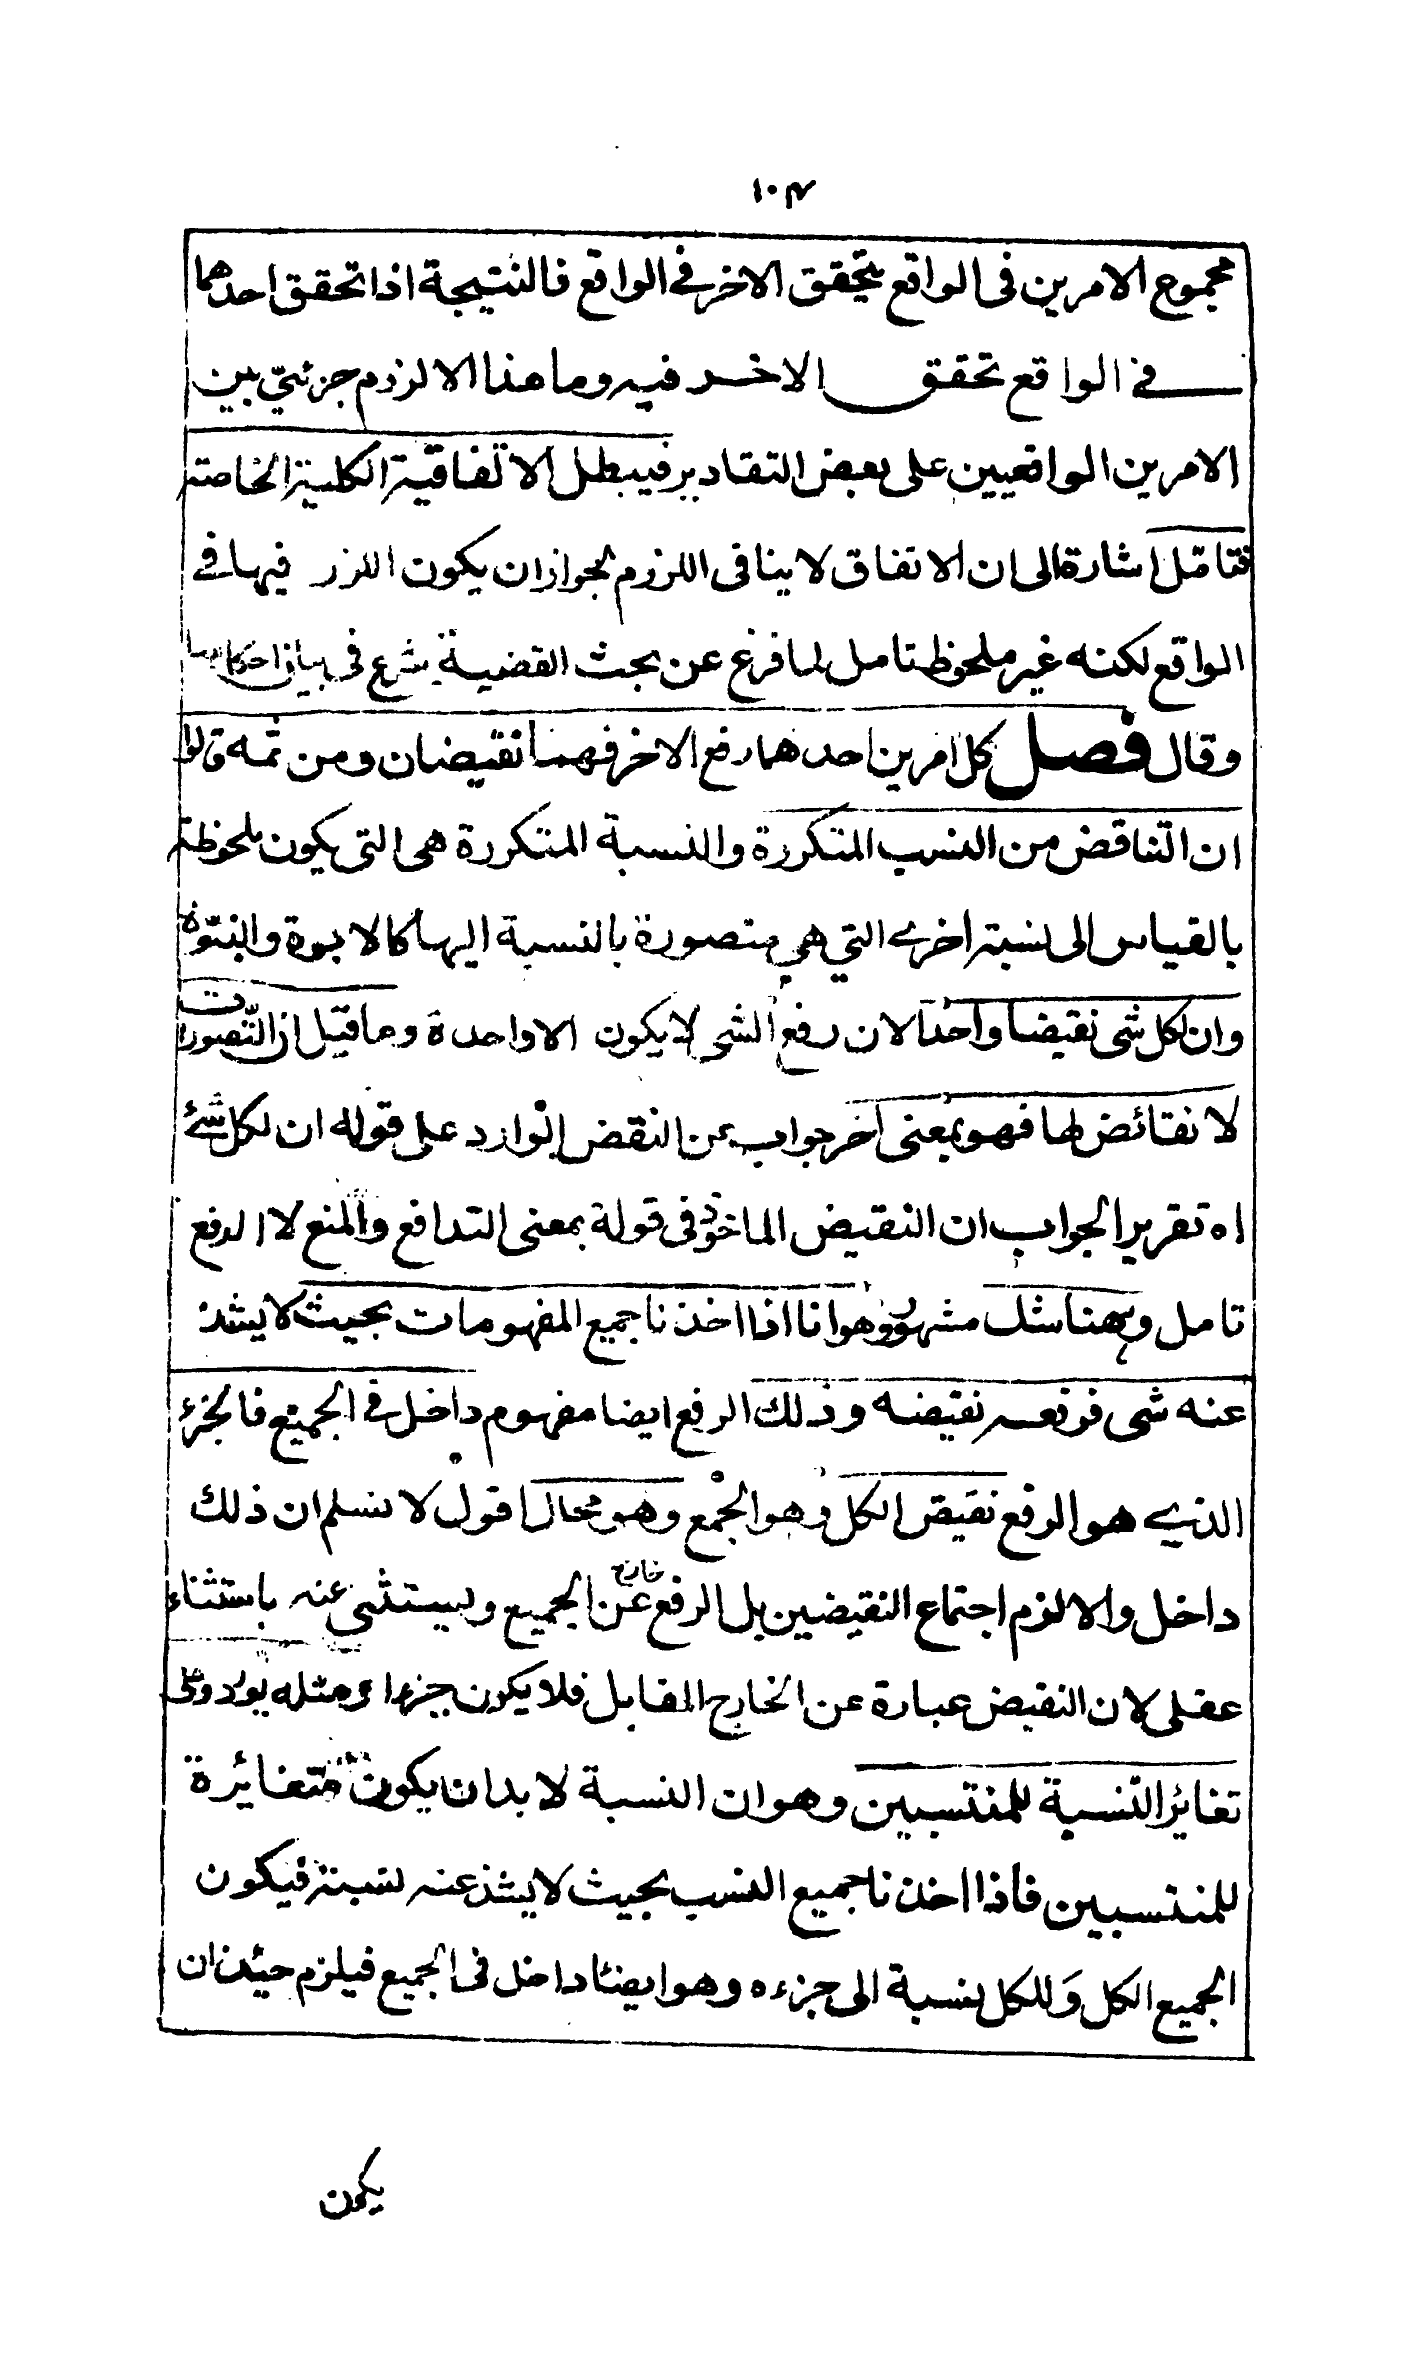 ١٠٤
مجموع الامرين فى الواقع يتحقق الاخر فى الواقع فالنتيجة اذا تحقق احدهما
فى الواقع تحقق الاخر فيه وما هذا الا لزوم جزئي بين
الامرين الواقعيين على بعض التقادير فيبطل الاتفاقية الكلية الخاصة
فتامّل اشارة الى ان الاتفاق لا ينافى اللزوم لجواز ان يكون اللزو فيها فے
الواقع لكنه غير ملحوظ تامل لما فرغ عن بحث القضية شرع فى بيان احكامها
وقال فصل كل امرين احدهما رفع الاخر فهما نقيضان ومن ثمه قالوا
ان التناقض من النسب المتكررة والنسبة المتكررة هى التى يكون ملحوظة
بالقياس الى نسبة اخرے التي هي متصورة بالنسبة اليها كالابوة والبنوّة
وان لكل شى نقيضا واحدا لان رفع الشى لا يكون الا واحدة وما قيل ان التّصورات
لا نقائض لها فهو بمعنى اخر جواب عن النقض الوارد على قوله ان لكل شئ
اه تقرير الجواب ان النقيض الماخوذ فى قولة بمعنى التدافع والمنع لا الرفع
تامل وههنا شك مشهور وهو انا اذا اخذنا جميع المفهومات بحيث لا يشذ
عنه شى فرفعه نقيضه وذلك الرفع ايضا مفهوم داخل فى الجميع فالجزء
الذے هو الرفع نقيض الكل وهو الجمع وهو محال اقول لا نسلم ان ذلك
داخل والا لزم اجتماع النقيضين بل الرفع خارج عن الجميع ويستثنى عنه باستثناء
عقلى لان النقيض عبارة عن الخارج المقابل فلا يكون جزءا ومثله يورد على
تغائر النّسبة للمنتسبين وهو ان النسبة لا بد ان يكون متغائرة
للمنتسبين فاذا اخذنا جميع النسب بحيث لا يشذ عنه نسبة فيكون
الجميع الكل وَللكل نسبة الى جزءه وهو ايضا داخل فى الجميع فيلزم حيئذ ان
يكون